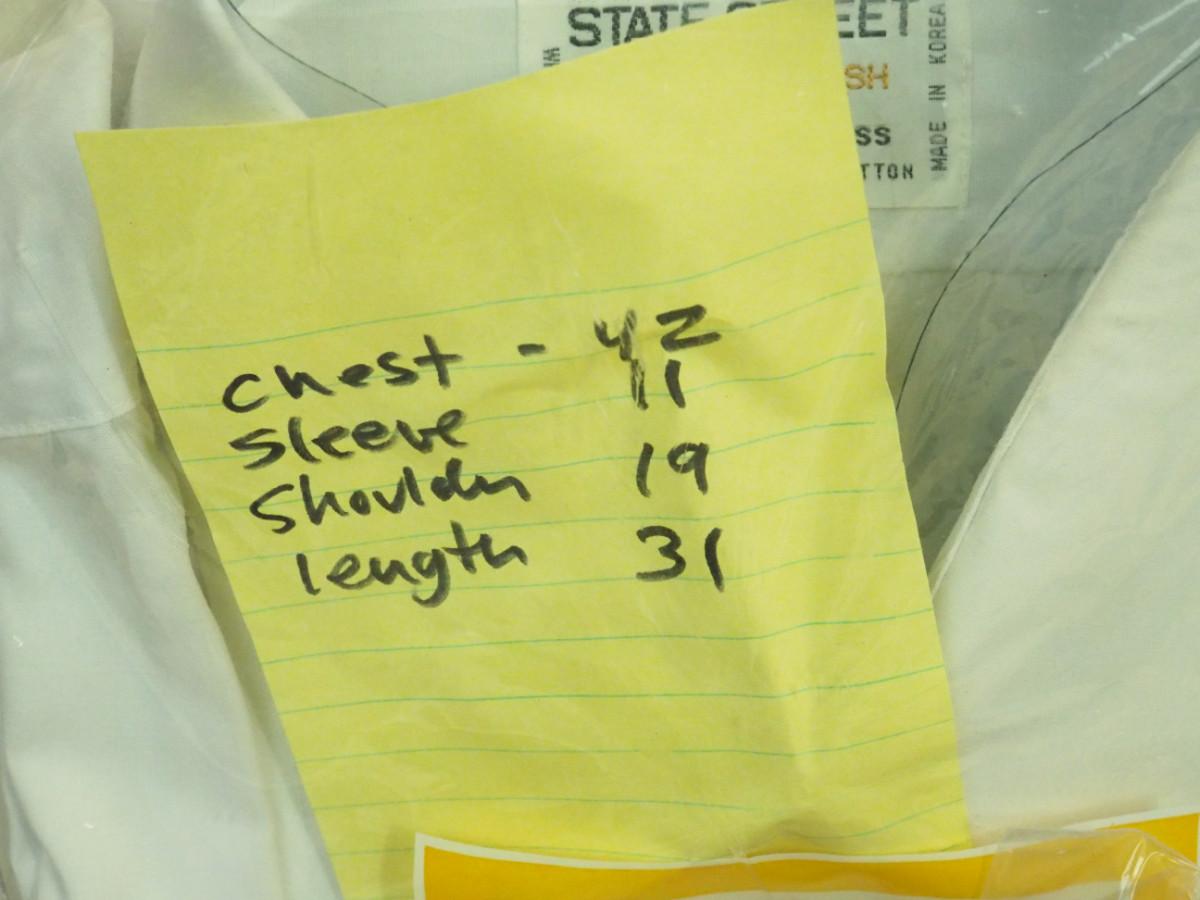 STATE STREET
SH
SS
TTON
MADE IN KOREA
Chest - 42
Sleeve 11
Shoulder 19
length 31